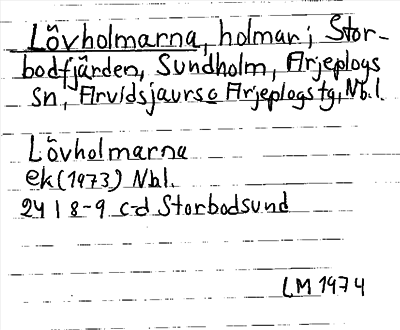 Lövholmarna, holmar i Stor-
bodfjärden, Sundholm, Arjeplogs
sn, Arvidsjaurs o Arjeplogs tg, Nb.l.
Lövholmarna
ek (1973) Nbl.
24 I 8-9 c-d Storbodsund
LM 1974